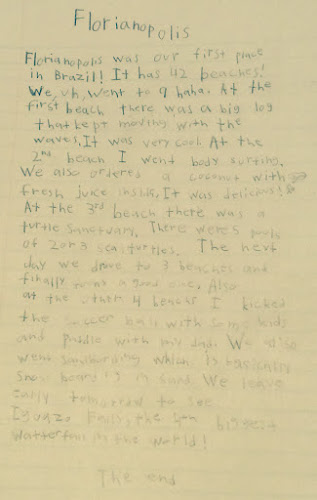 Florianopolis
Florianopolis was our first place
in Brazil! It has 42 beaches!
We, uh, went to 9 haha. At the
first beach there was a big log
that kept moving with the
waves. It was very cool. At the
2nd beach I went body surfing.
We also ordered a coconut with
fresh juice inside. It was delicious!
At the 3rd beach there was a
turtle sanctuary. There were 5 pools
of 2 or 3 sea turtles. The next
day we drove to 3 beaches and
finally a good one. Also
at the other 4 beaches I kicked
the soccer ball with some kids
and Paddle with my dad. We also
went sandbording which is basically
snow boarding in sand. We leave
early tomorrow to see
Iguazo Falls, the 4th biggest
waterfall in the world!
The end